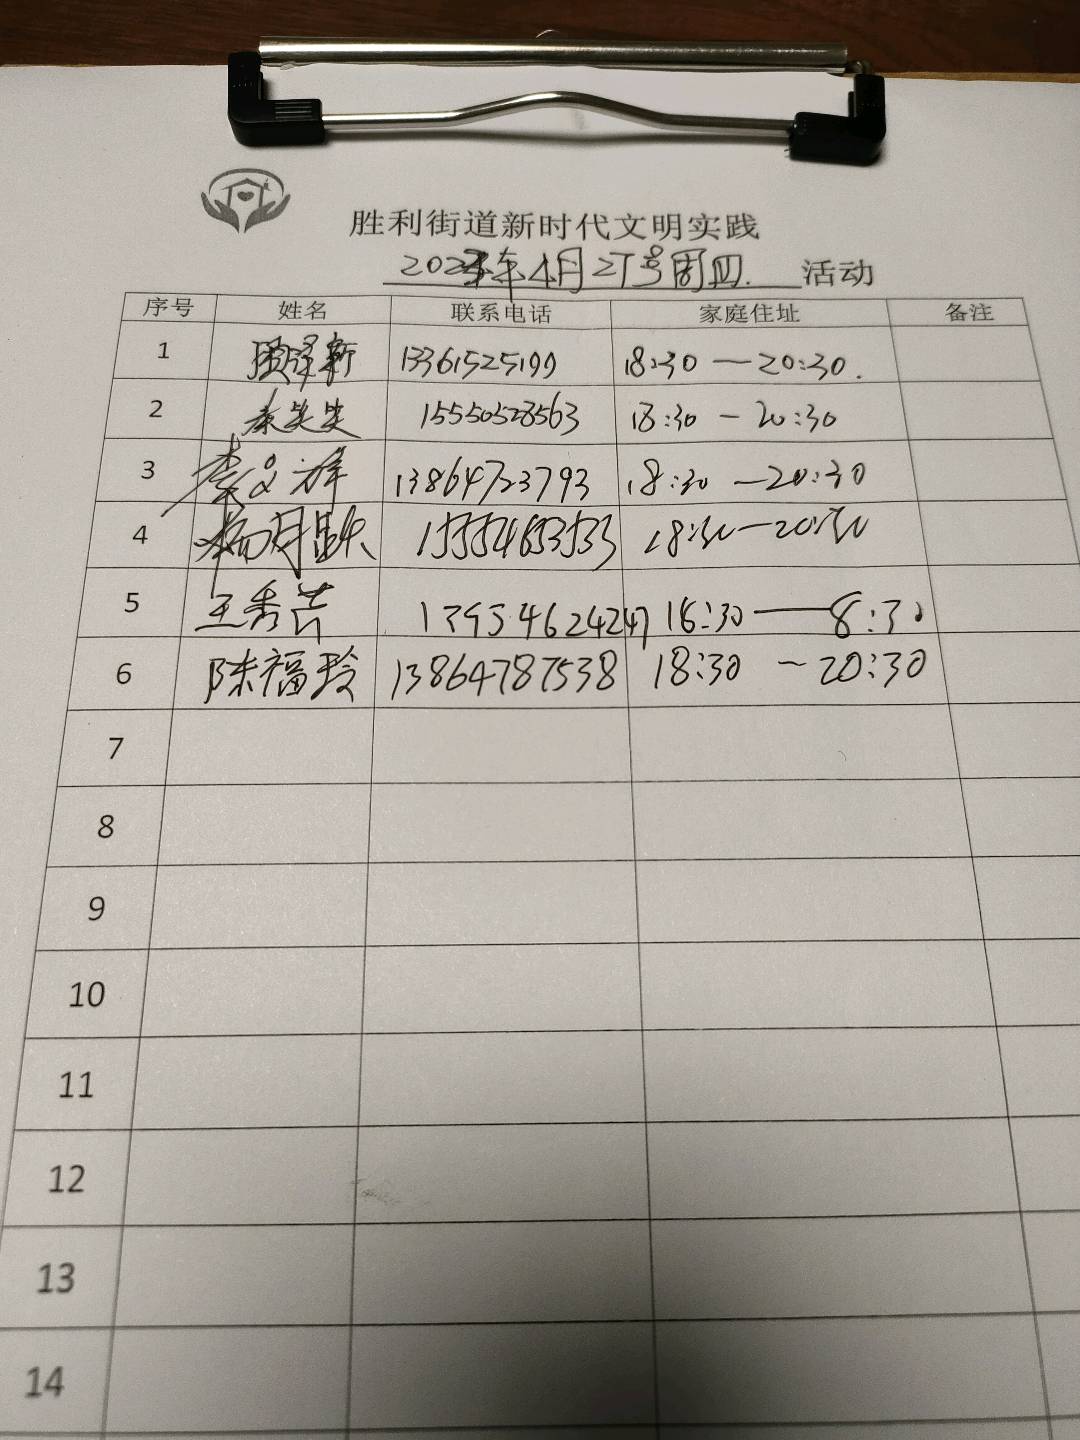 胜利街道新时代文明实践
年4月27号周四. 活动
序号 姓名 联系电话 家庭住址 备注
1 13361525199 18:30—20:30.
2 秦笑笑 15550528563 18:30—20:30
3 李 祥 13864723793 18:30—20:30
4 杨月 15554653533 18:30—20:30
5 王秀芸 13954624247 18:30——8:30
6 陈福玲 13864787538 18:30—20:30
7
8
9
10
11
12
13
14